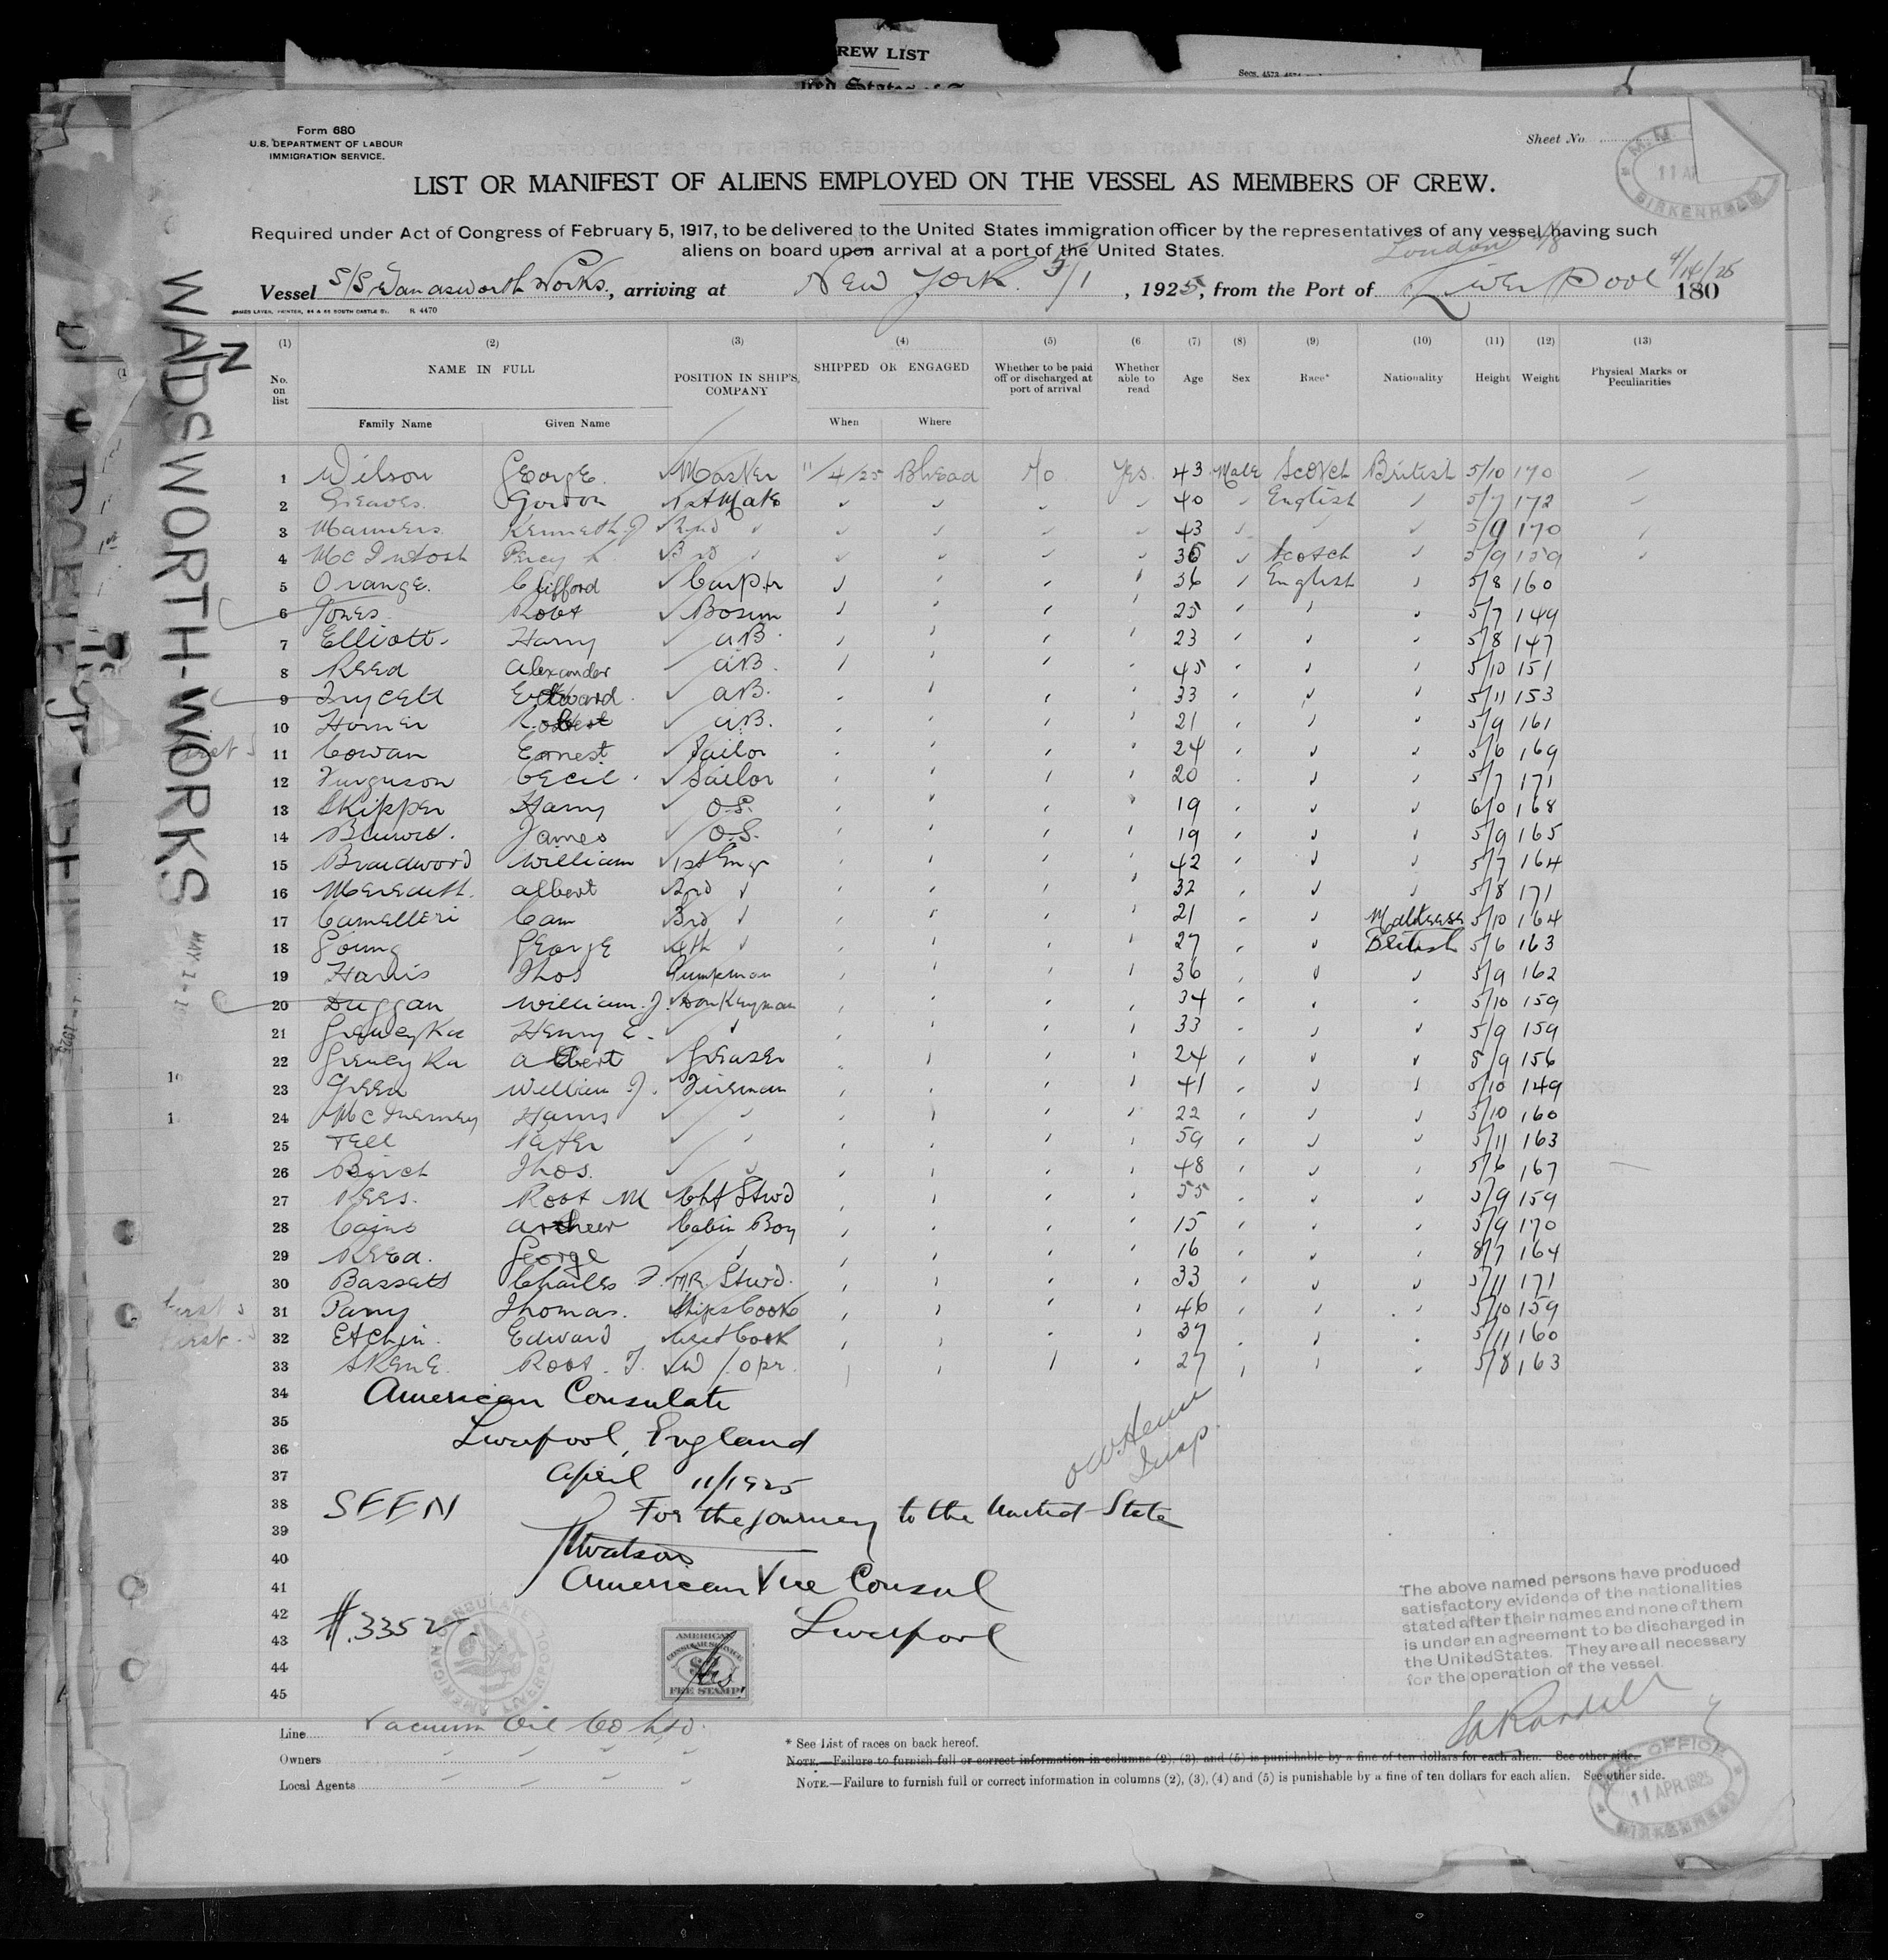 REW LIST
Form 680
U.S. DEPARTMENT OF LABOUR
IMMIGRATION SERVICE.
Sheet No
11 AP
BIRKENHEAD
LIST OR MANIFEST OF ALIENS EMPLOYED ON THE VESSEL AS MEMBERS OF CREW.
Required under Act of Congress of February 5, 1917, to be delivered to the United States immigration officer by the representatives of any vessel having such
aliens on board upon arrival at a port of the United States.
London 4/8
Vessel S/S Wandsworth Works., arriving at New York. 5/1, 1925, from the Port of Liverpool 4/14/25
JAMES LAVER, PRINTER, 64 & 66 SOUTH CASTLE ST. R 4470 180
WADSWORTH-WORKS
N
(1) (2) (3) (4) (5) (6 (7) (8) (9) (10) (11) (12) (13)
No. on list NAME IN FULL POSITION IN SHIP'S COMPANY SHIPPED OR ENGAGED Whether to be paid off or discharged at port of arrival Whether able to read Age Sex Race* Nationality Height Weight Physical Marks or Peculiarities
Family Name Given Name When Where
1 Wilson George Master 11/4/25 Bhead No Yes 43 Male Scotch British 5/10 170
2 Greaves Gordon 1st Mate 40 English 5/7 172
3 Manners Kenneth J 2nd 43 5/9 170
4 McIntosh Percy L 3rd 36 Scotch 5/9 159
5 Orange Clifford Carptr 36 English 5/8 160
6 Jones Robt Bosun 25 5/7 149
7 Elliott Harry A.B. 23 5/8 147
8 Reed Alexander A.B. 45 5/10 151
9 Edward A.B. 33 5/11 153
10 Homer Robert A.B. 21 5/9 161
11 Cowan Ernest Sailor 24 5/6 169
12 Furguson Cecil Sailor 20 5/7 171
13 Skipper Harry O.S. 19 6/0 168
14 James O.S. 19 5/9 165
15 Braidwood William 1st Engr 42 5/7 164
16 Meredith Albert 2nd 32 5/8 171
17 Camelleri Cam 3rd 21 Malteese 5/10 164
18 Young George 4th 27 British 5/6 163
19 Harris Thos Pumpman 36 5/9 162
20 Duggan William J. Donkeyman 34 5/10 159
21 Henry E. 33 5/9 159
22 Albert Greaser 24 5/9 156
23 Green William J. Fireman 41 5/10 149
24 McInerney Harris 22 5/10 160
25 Tell Peter 59 5/11 163
26 Birch Thos. 48 5/6 167
27 Rees. Robt M Chf Stwd 55 5/9 159
28 Arthur Cabin Boy 15 5/9 170
29 Reed. George 16 5/7 164
30 Bassett Charles F. M.R. Stwd. 33 5/11 171
31 Parry Thomas. Ships Cook 46 5/10 159
32 Etchin Edward Asst Cook 37 5/11 160
33 Skene Robt. J. W/Opr. 27 5/8 163
34 American Consulate
35
36 Liverpool, England
37 April 11/1925
38 SEEN For the journey to the United State
39
40 Watson
41 American Vice Consul
42 #.3352
43 Liverpool
44
45
Insp.
AMERICAN CONSULATE LIVERPOOL
AMERICAN
CONSULAR SERVICE
$2
FEE STAMP
The above named persons have produced
satisfactory evidence of the nationalities
stated after their names and none of them
is under an agreement to be discharged in
the United States. They are all necessary
for the operation of the vessel.
Line Vacuum Oil Co Ltd.
Owners
Local Agents
* See List of races on back hereof.
NOTE.—Failure to furnish full or correct information in columns (2), (3), and (5) is punishable by a fine of ten dollars for each alien. See other side.
NOTE.—Failure to furnish full or correct information in columns (2), (3), (4) and (5) is punishable by a fine of ten dollars for each alien. See other side.
OFFICE
11 APR. 1925
BIRKENHEAD